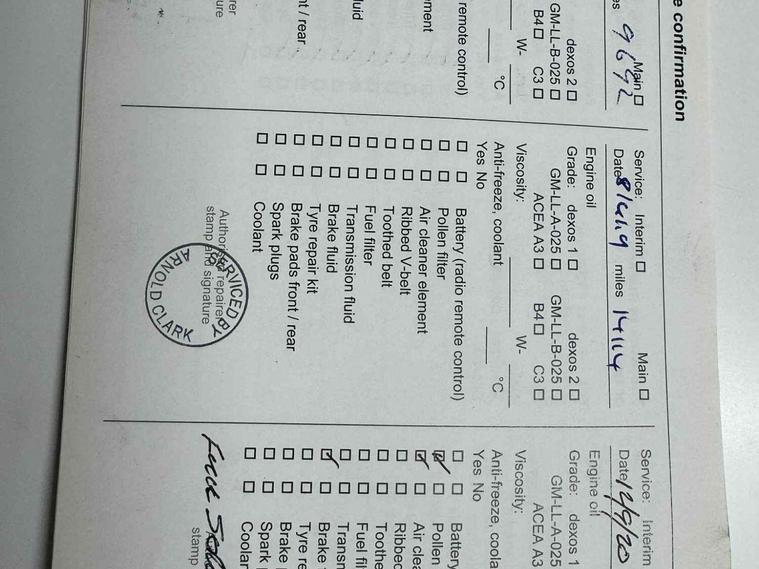 e confirmation
es 9692
Main
dexos 2
GM-LL-B-025
B4 C3
W-
°C
remote control)
ment
luid
nt / rear
rer
ure
Service: Interim Main
Date 8/4/19 miles 14114
Engine oil
Grade: dexos 1 dexos 2
GM-LL-A-025 GM-LL-B-025
ACEA A3 B4 C3
Viscosity: W-
Anti-freeze, coolant °C
Yes No
Battery (radio remote control)
Pollen filter
Air cleaner element
Ribbed V-belt
Toothed belt
Fuel filter
Transmission fluid
Brake fluid
Tyre repair kit
Brake pads front / rear
Spark plugs
Coolant
Authorised repairer
stamp and signature
SERVICED BY
ARNOLD CLARK
Service: Interim
Date /9/20
Engine oil
Grade: dexos 1
GM-LL-A-025
ACEA A3
Viscosity:
Anti-freeze, coola
Yes No
Battery
Pollen
Air clea
Ribbed
Toothe
Fuel fil
Transn
Brake
Tyre re
Brake
Spark
Coolan
stamp